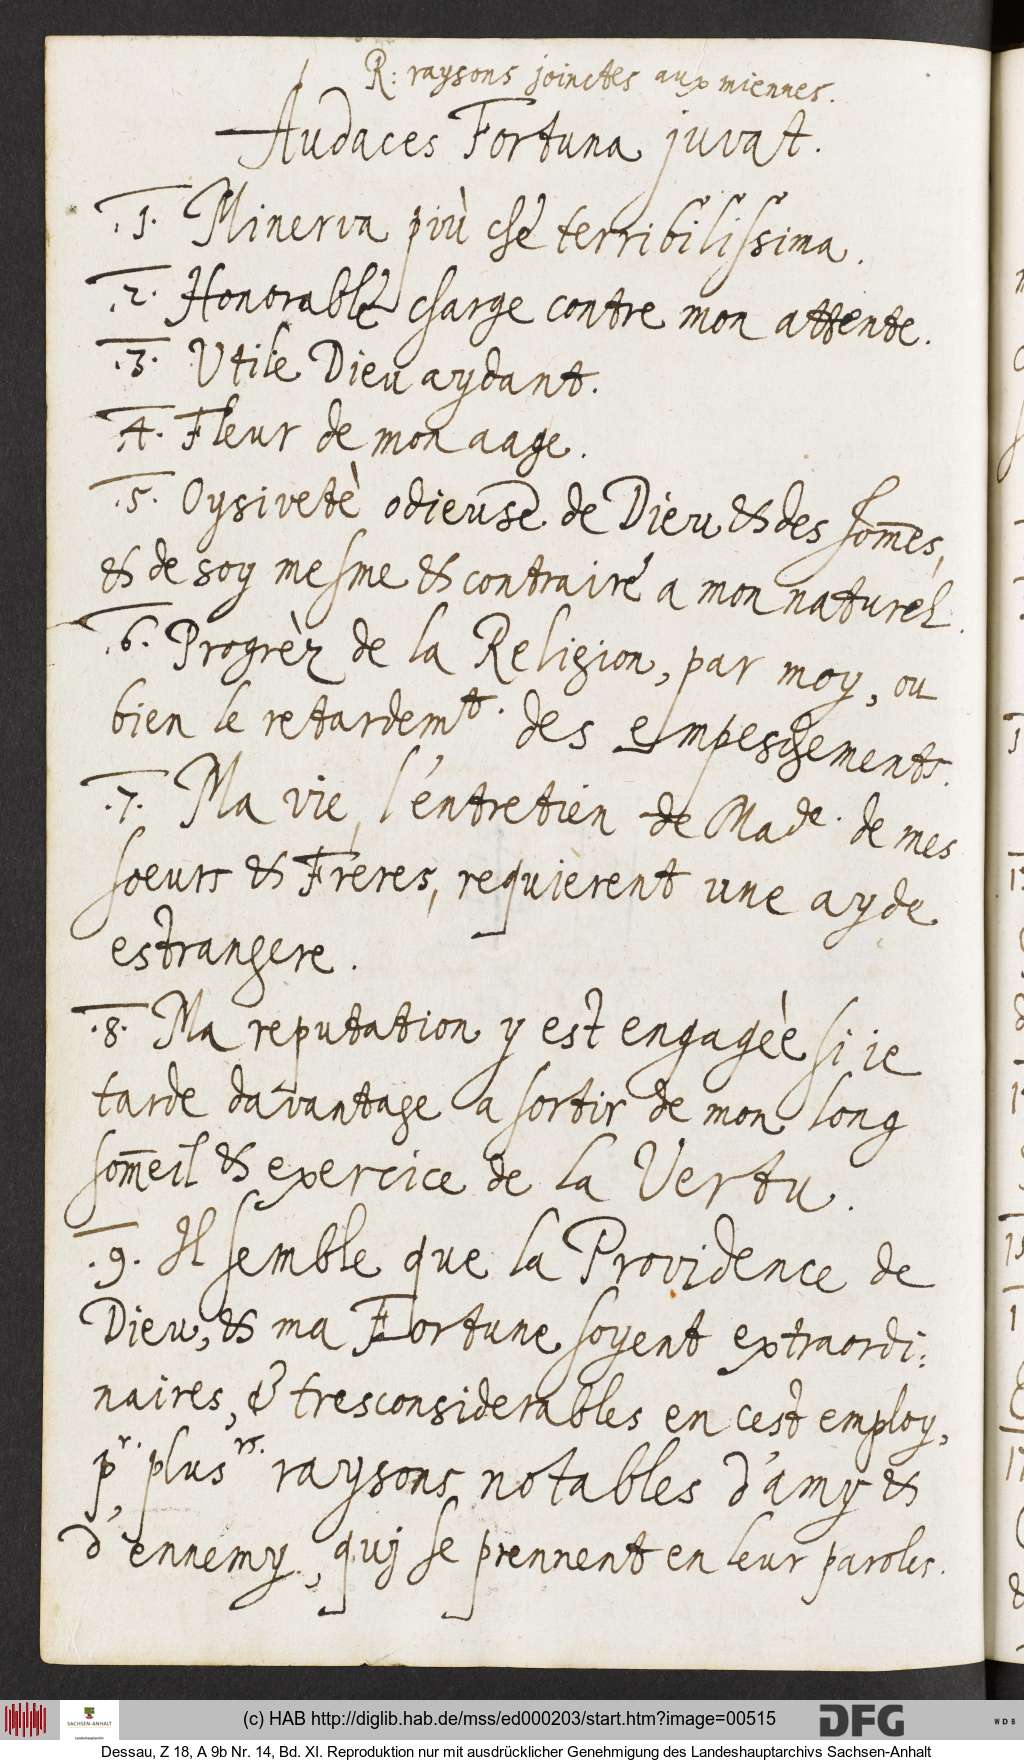 R: raysons joinctes aux miennes.
Audaces Fortuna juvat.
.1. Minerva più che terribilissima.
.2. Honorable charge contre mon attente.
.3. Utile Dieu aydant.
.4. Fleur de mon aage.
.5. Oysivetè odieuse de Dieu & des hom̄es,
& de soy mesme & contraire a mon naturel.
.6. Progrèz de la Religion, par moy, ou
bien le retardemt. des empeschements.
.7. Ma vie, l'entretien de Made. de mes
soeurs & Freres, requierent une ayde
estrangere.
.8. Ma reputation y est engagèe si ie
tarde davantage a sortir de mon long
som̄eil & exercice de la Vertu.
.9. Il semble que la Providence de
Dieu, & ma Fortune soyent extraordi:
naires, & tresconsiderables en cest employ,
pr. plusrs. raysons notables d'amy &
d'ennemy, quj se prennent en leur paroles.
SACHSEN-ANHALT
Landeshauptarchiv
(c) HAB http://diglib.hab.de/mss/ed000203/start.htm?image=00515
DFG
WDB
Dessau, Z 18, A 9b Nr. 14, Bd. XI. Reproduktion nur mit ausdrücklicher Genehmigung des Landeshauptarchivs Sachsen-Anhalt